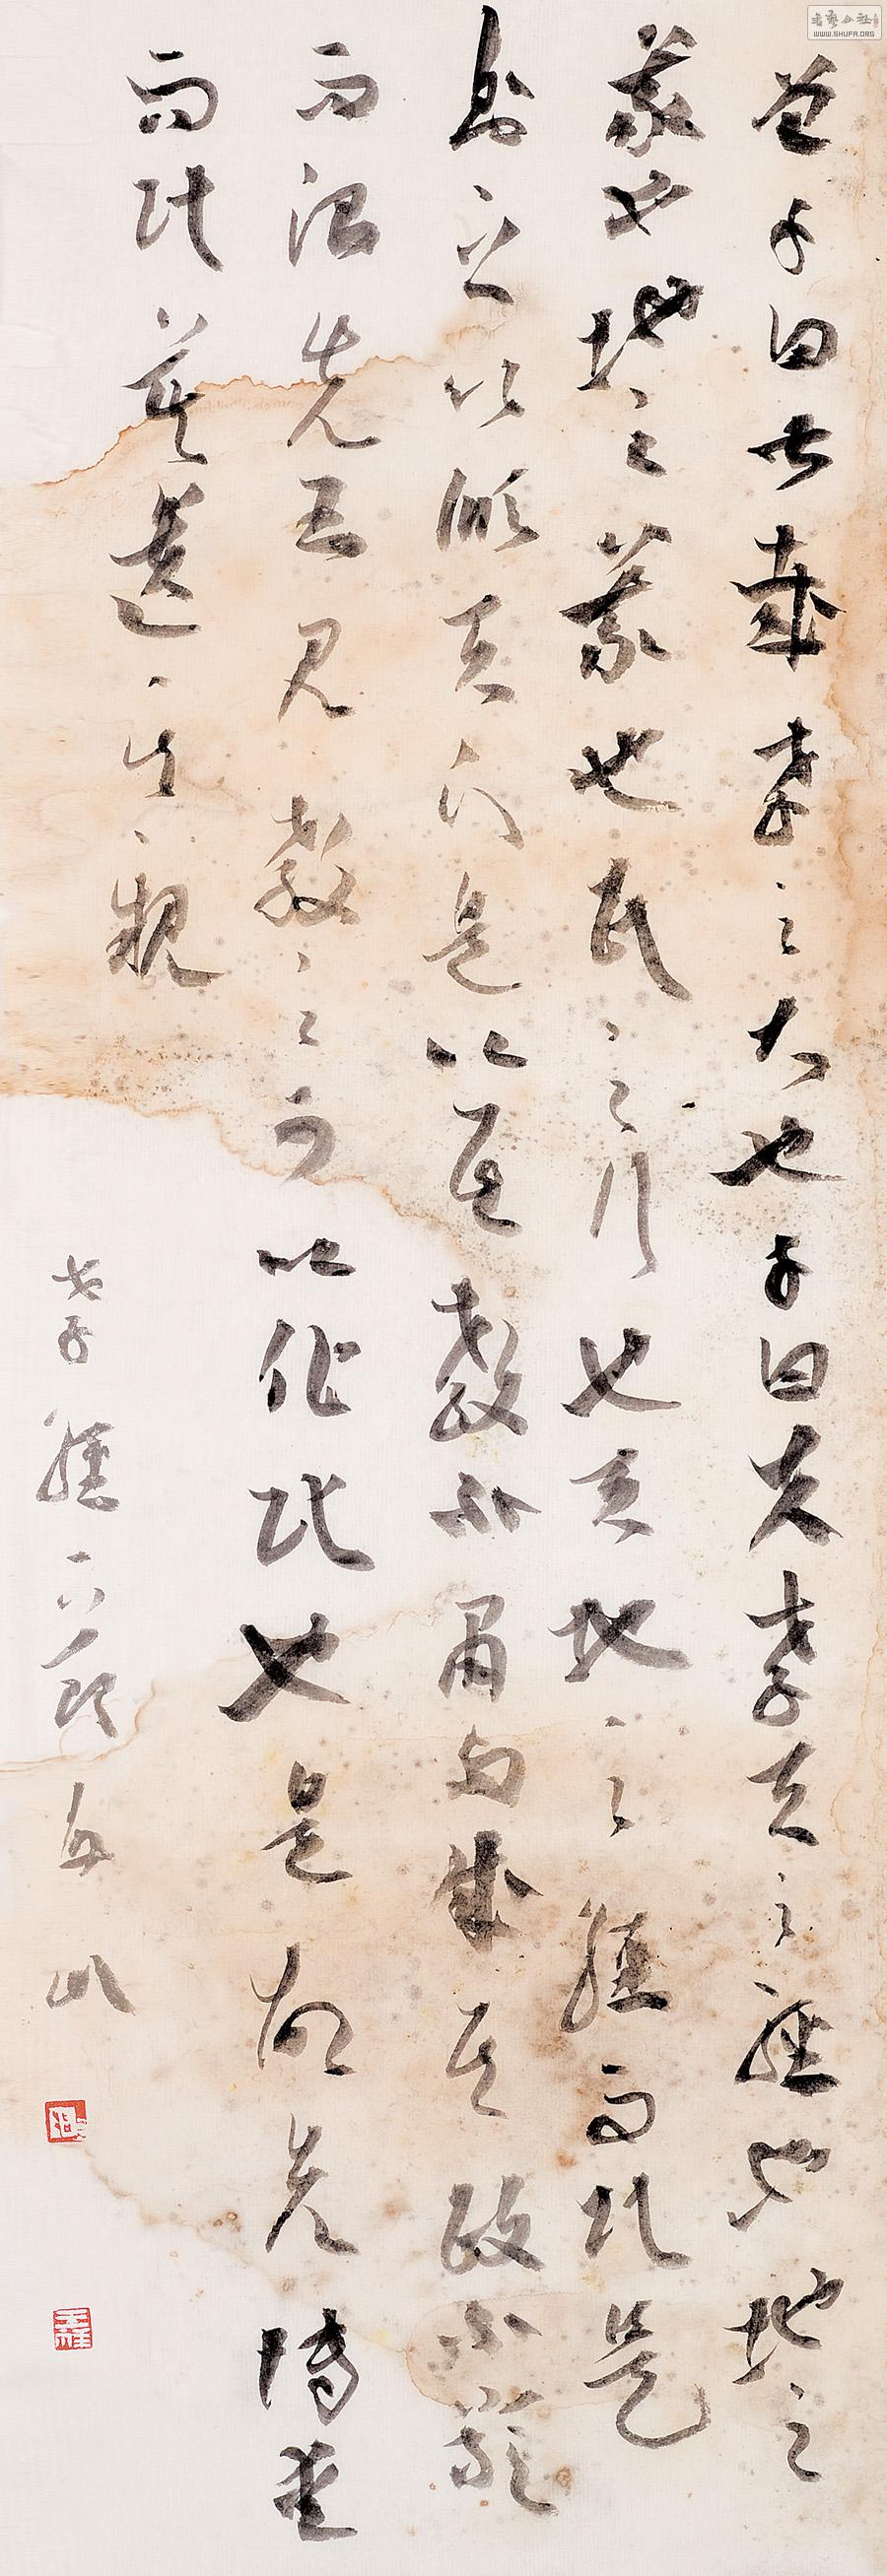 曾子曰甚哉孝之大也子曰夫孝天之經也地之
義也地之義也民之行也天地之經而民是
則之以順天下是以其教不肅而成其政不嚴
而治先王見教之可以化民也是故先博愛
而民莫遺其親
孝經節山
WWW.SHUFA.ORG